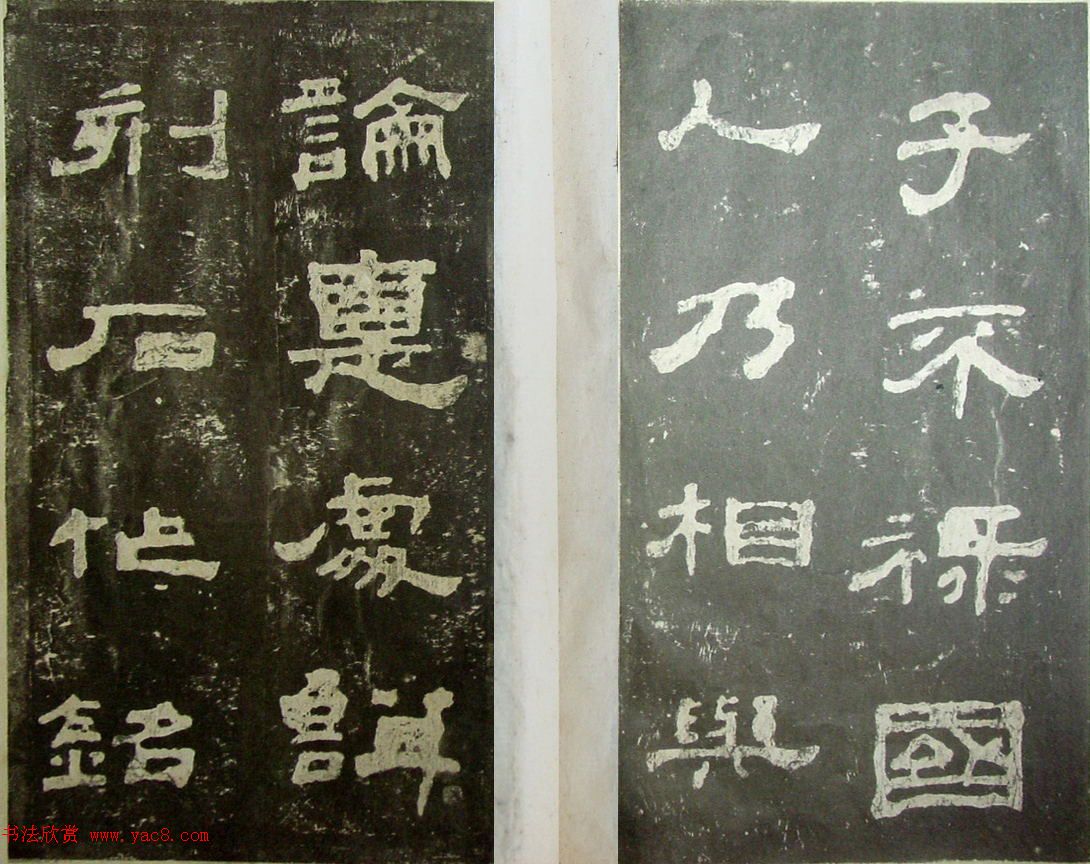 子不祿國
人乃相與
論悳處
刻石作銘
书法欣赏 www.yac8.com